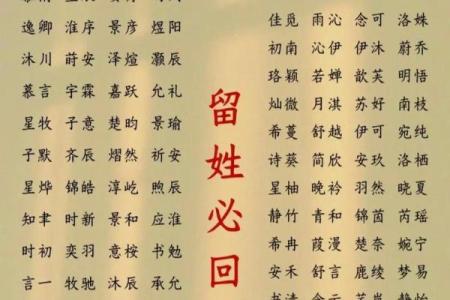 逸卿 淮序 景彦 煜阳
沐川 莳安 泽煊 灏辰
慕言 宇霖 嘉跃 允礼
星牧 子意 楚昀 景瑜
子默 齐辰 熠然 祈安
星烨 锦皓 淳屹 煦辰
知聿 时新 景和 应淮
时初 奕羽 意桉 书勉
言一 牧驰 沐辰 承允
留姓必回
佳觅 雨沁 念可 洛姝
初南 沁伊 伊沐 蔚乔
珞颖 若婵 歆芙 明悟
灿微 月淇 苏好 南枝
希蔓 舒越 伊可 宛纯
诗葵 简欣 安玖 洛栖
星柚 晚衿 羽然 晓夏
静竹 青和 锦茵 芮瑶
希冉 葭漫 楚奈 婉宁
安禾 舒言 鹿绫 梦易